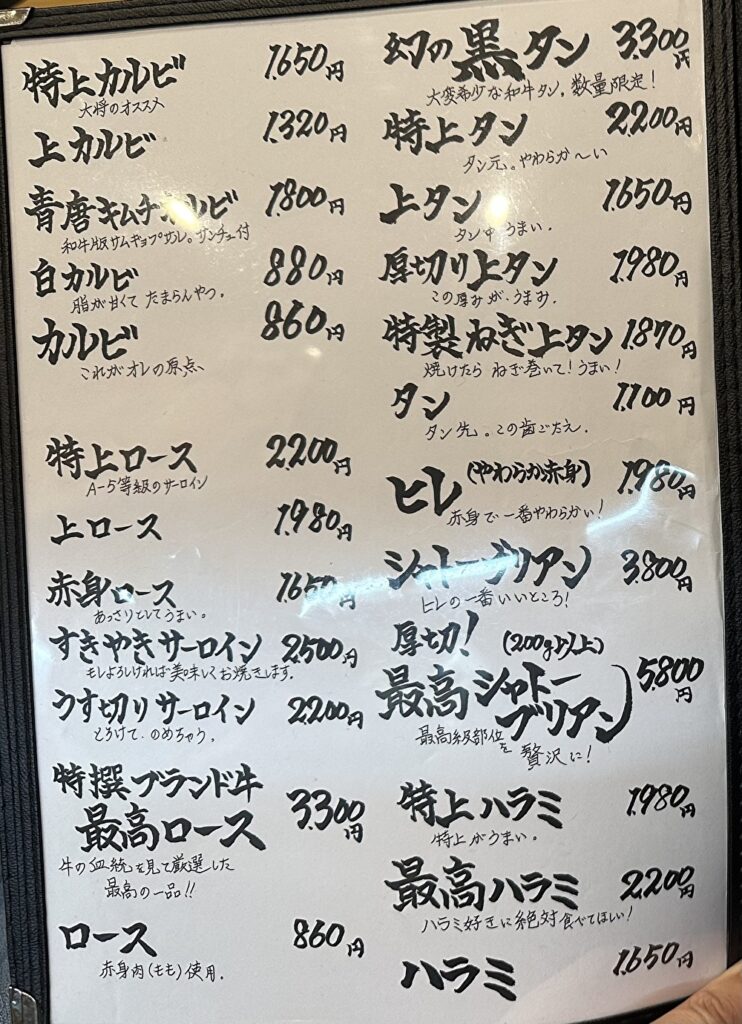 特上カルビ 1,650円
大将のオススメ
上カルビ 1,320円
青唐キムチカルビ 1,800円
和牛版サムギョプサル。サンチュ付
白カルビ 880円
脂が甘くて たまらんやつ。
カルビ 860円
これがオレの原点、
特上ロース 2,200円
A-5等級のサーロイン
上ロース 1,980円
赤身ロース 1,650円
あっさりとしてうまい。
すきやきサーロイン 2,500円
もしよろしければ美味しくお焼きします。
うす切りサーロイン 2,200円
とろけて、のめちゃう。
特撰ブランド牛
最高ロース 3,300円
牛の血統を見て厳選した
最高の一品!!
ロース 860円
赤身肉(もも)使用.
幻の黒タン 3,300円
大変希少な和牛タン。数量限定!
特上タン 2,200円
タン元。やわらか〜い
上タン 1,650円
タン中 うまい.
厚切り上タン 1,980円
この厚みが、うまみ.
特製ねぎ上タン 1,870円
焼けたら ねぎ巻いて!うまい!
タン 1,100円
タン先。この歯ごたえ.
ヒレ(やわらか赤身) 1,980円
赤身で一番やわらかい!
シャトーブリアン 3,800円
ヒレの一番いいところ!
厚切! (200g以上)
最高シャトーブリアン 5,800円
最高級部位を贅沢に!
特上ハラミ 1,980円
特上がうまい。
最高ハラミ 2,200円
ハラミ好きに絶対食べてほしい!
ハラミ 1,650円